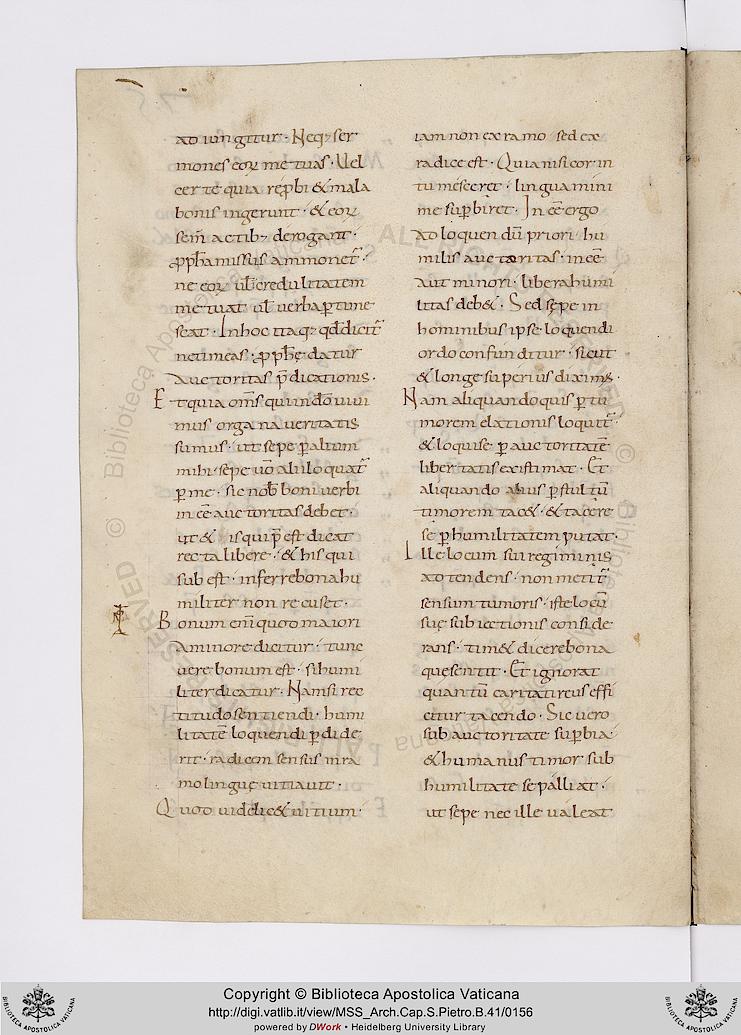 ad iungitur · Neq; ser
mones eoꝝ metuas · Vel
certe quia rep̄bi & mala
bonis ingerunt · & eoꝝ
sem̄ actib; derogant ·
ꝓph̄a missus ammonet᷑ ·
ne eoꝝ ul̄ credulitatem
metuat ul̄ uerba ꝑtime
scat · In hoc itaq; qd̄ dicit᷑
ne timeas · ꝓph̄ę datur
auctoritas p̄dicationis ·
Et quia om̄s qui in dō uiui
mus organa ueritatis
sumus · ut sepe ꝑ alium
mihi · sepe uō alii loquat᷑
ꝑ me · sic nob̄ boni uerbi
in eē auctoritas debet ·
ut & is qui p̄est dicat
recta libere · & his qui
sub est · inferre bona hu
militer non recuset ·
Bonum eni quod maiori
a minore dicitur · tunc
uere bonum est · si humi
liter dicatur · Nam si rec
titudo sentiendi · humi
litatē loquendi ꝑdide
rit · radicem sensus in ra
mo linguę uitiauit ·
Quod uidelic& uitium ·
iam non ex ramo sed ex
radice est · Quia nisi cor in
tumesceret · lingua mini
me suꝑbiret · In eē ergo
ad loquendū priori · hu
milis auctoritas · in eē
aut minori · libera humi
litas deb& · Sed sępe in
hominibus ipse loquendi
ordo confunditur · sicut
& longe superius diximus ·
Nam aliquando quis ꝑ tu
morem elationis loquit᷑ ·
& loqui se ꝑ auctoritatē
libertatis existimat · Et
aliquando alius ꝑ stultū
timorem tac& · & tacere
se ꝑ humilitatem putat ·
Ille locum sui regiminis
adtendens · non metit᷑
sensum tumoris · iste locū
suę subiectionis conside
rans · tim& dicere bona
que sentit · Et ignorat
quantū caritati reus effi
citur tacendo · Sic uero
sub auctoritate suꝑbia ·
& humanus timor sub
humilitate se palliat ·
ut sepe nec ille ualeat
Copyright © Biblioteca Apostolica Vaticana
http://digi.vatlib.it/view/MSS_Arch.Cap.S.Pietro.B.41/0156
powered by DWork • Heidelberg University Library